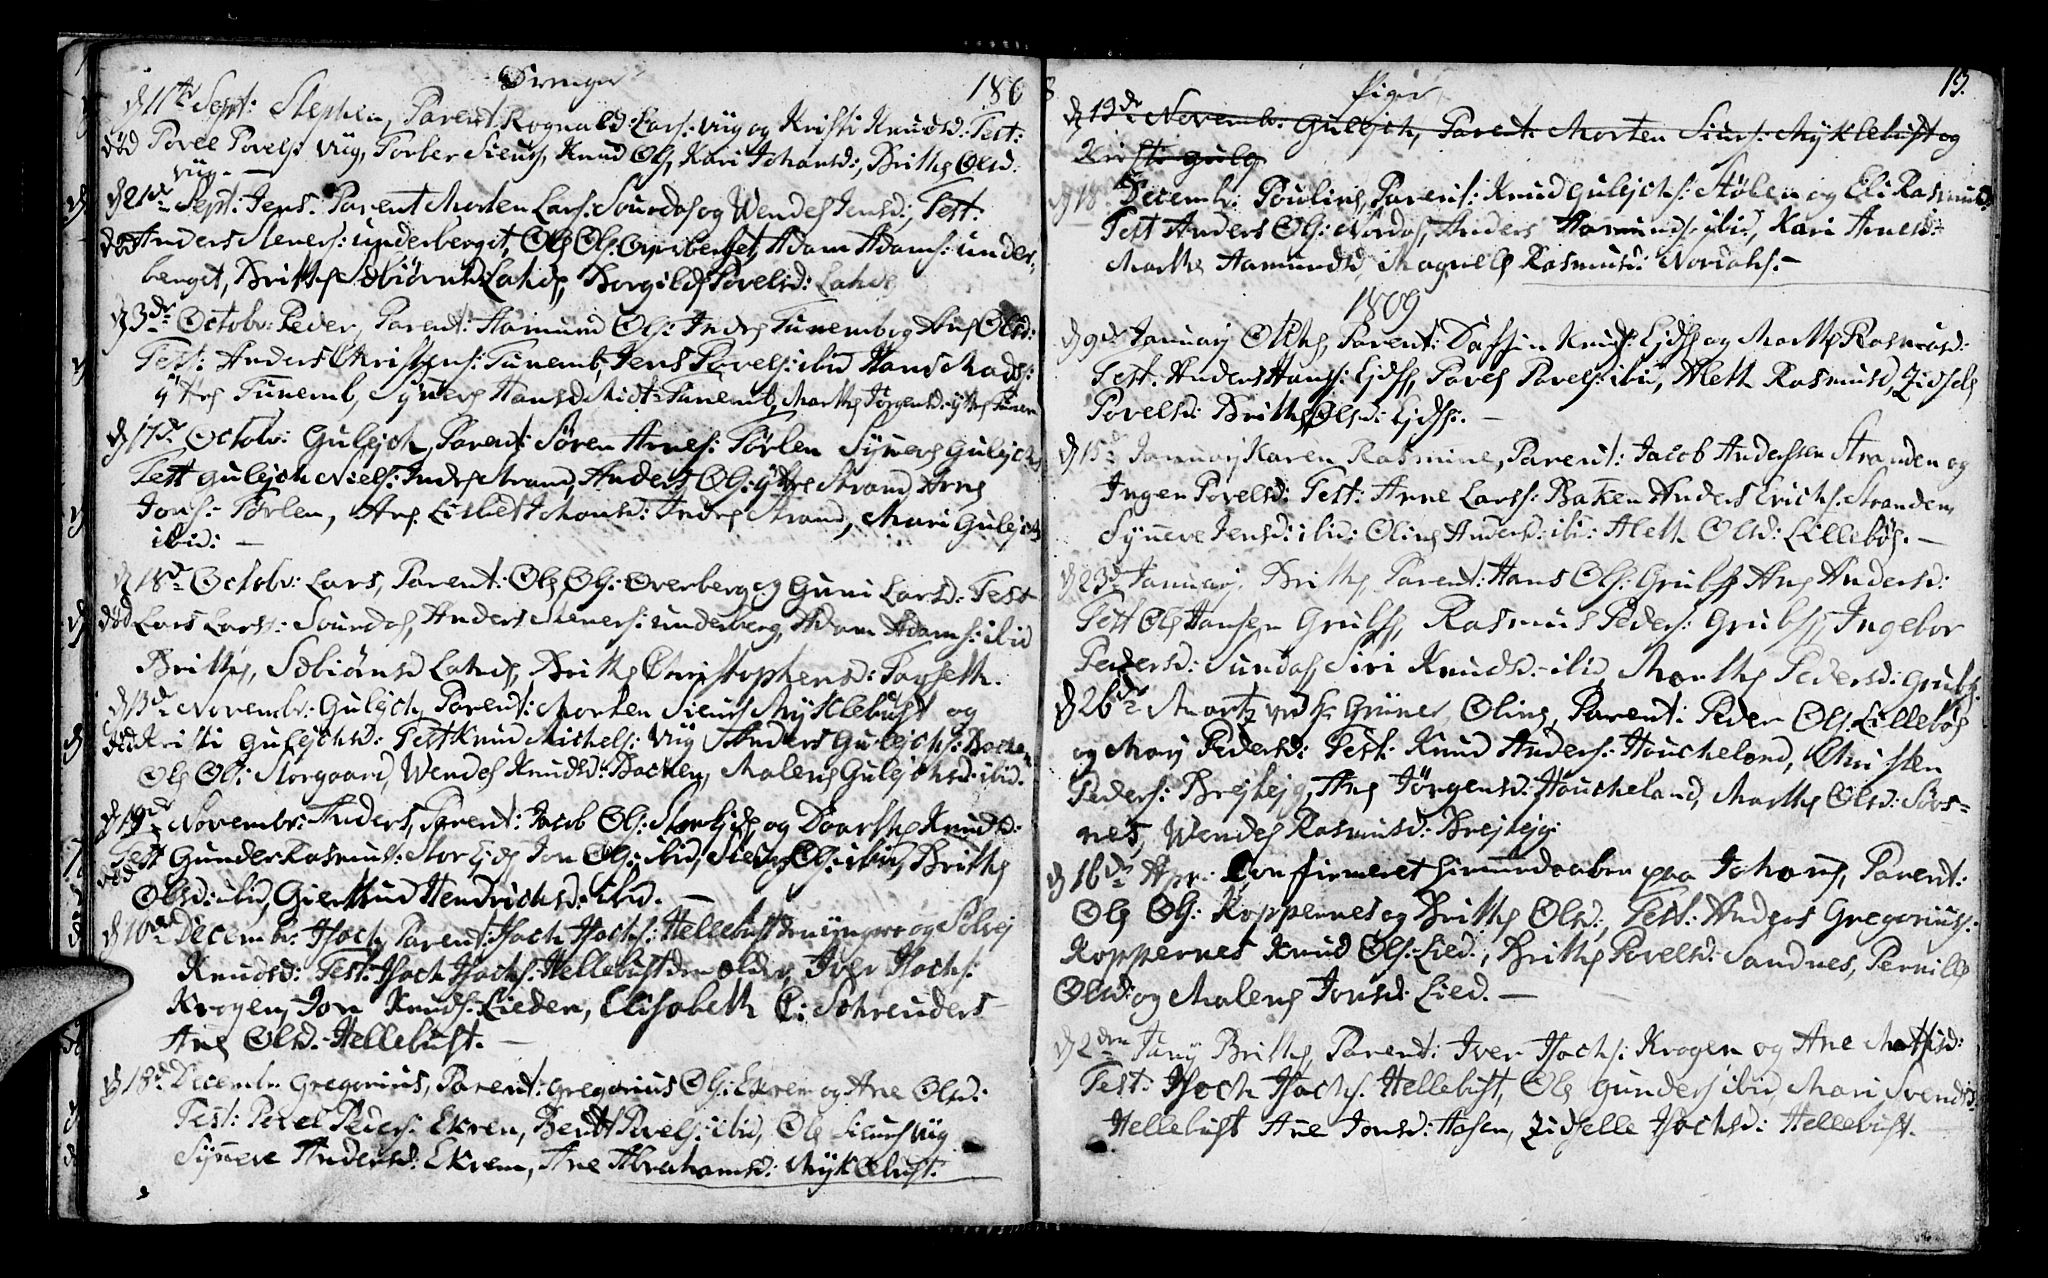 Drenger 180
d 11te Sept: Stephen, Parent Rognald Lars: Viig og Kristi Knudsd: Test:
død Povel Povels: Viig, Torber Siurs, Knud Ols, Kari Johansd:, Brithe Olsd:
Viig. —
d 21de Sept: Jens. Parent Morten Lars: Sourdal og Wendel Jensd:, Test.
død Anders Steners: underberget, Ole Ols: Overberget, Adam Adams: under-
berget, Brithe Sebiörnsd Lahde, Borgilde Povelsd: Lahde
d 3de Octobr: Peder, Parent: Aamund Ols: Indre Tunemb og Ane Olsd:
Test: Anders Christens: Tunemb, Jens Povels: ibid Hans Mads:
ytre Tunemb, Synneve Hansd Midt-Tunemb, Marthe Jörgensd: ytre Tunem
d 17de Octobr: Guleich, Parent: Sören Arnes: Törlen Synneve Guleichs
Test Guleich Niels: Indre Strand, Anders Ols: ytre Strand, Arne
Jons: Törlen, Ane Lisbet Monsd: Indre Strand, Mari Guleichs
ibid: —
d 18de Octobr: Lars, Parent: Ole Ols: Overberg og Guni Larsd: Test
død Lars Lars: Sourdal, Anders Steners: underberg, Adam Adams: ibid
Brithe, Sebiörnsd Lahde, Brithe Christophersd: Tayseth.
d 13de Novembr: Guleich, Parent: Morten Siurs Myklebust og
død Kristi Guleichsd: Test Knud Michels: Viig Anders Guleichs: Backen
Ole Ols: Storgaard, Wendel Knudsd: Backen, Malene Guleichsd: ibid.
d 19de Novembr: Anders, Parent: Jacob Ols: Stor Eide og Doarthe Knudsd:
Test Gunder Rasmus: Stor Eide Jon Ols: ibid, Siurs Ols: ibid, Brithe
død
Olsd: ibid, Giertrud Hendrichsd: ibid. —
d 10de Decembr: Isach, Parent: Isach Isachs: Hellebust den yngere og Solvej
Knudsd: Test: Isach Isachs: Hellebust den Older, Iver Isachs:
Krogen, Jon Knuds: Lieden, Elisabeth C: Schreuders
Ane Olsd. Hellebust. —
d 18de Decembr Gregorius, Parent: Gregorius Ols: Ekrem og Ane Olsd:
Test: Povel Peders: Ekrem, Berdt Povels: ibid, Ole Siurs Viig
Synneve Andersd: Ekrem, Ane Abrahamsd: Myklebust.
8 Piger 13.
d 19de Novembr: Guleich, Parent: Morten Siurs: Myklebust og
Kristi Guleg
d 18de Decembr: Pouline, Parent: Knud Guleichs: Stölen og Eli Rasmusd:
Test Anders Ols: Nordal, Anders Aamunds: ibid, Kari Arnesd:
Marthe Aamundsd, Magnele Rasmusd: Nordahl. —
1809
d 9de Januarj Olthe, Parent: Daffin Knuds Eidse og Marthe Rasmusd:
Test: Anders Hans: Eidse, Povel Povels: ibid, Aleth Rasmusd, Zidsele
Povelsd: Brithe Olsd: Eidse. —
d 15de Januarj Karen Rasmine, Parent: Jacob Anderssen Stranden og
Ingen Povelsd: Test: Arne Lars: Bakken Anders Erichs: Stranden,
Synneve Jensd: ibid: Oline Andersd: ibid: Aleth Olsd: Lillebö. —
d 23de Januarj. Brithe, Parent: Hans Ols: Grubse Ane Andersd:
Test Ole Hansen Grubse, Rasmus Peders: Grubse, Ingebor
Pedersd: Sundal, Siri Knudsd: ibid, Marthe Pedersd: Grubse.
d 26de Martz ved Hr Grüner, Oline, Parent: Peder Ols: Lillebö
og Marj Pedersd: Test: Knud Anders: Houcheland, Christen
Peders: Brejtejg, Ane Jörgensd: Houcheland, Marthe Olsd: Sörs-
nes, Wendel Rasmusd: Brejtejg.
d 16de Apr: Confirmeret Hiemmedaaben paa Johane, Parent:
Ole Ols: Koppernes og Brithe Olsd:, Test: Anders Gregorius:
Koppernes Knud Ols: Lied, Brithe Povelsd: Sandnes, Pernille
Olsd: og Malene Jonsd: Lied. —
d 2den Junÿ Brithe, Parent: Iver Isachs: Krogen og Ane Mathisd:
Test: Isach Isachs: Hellebust, Ole Gunders ibid, Mari Svendsd:
Hellebust Ane Jonsd: Hasen, Zidselle Isachsd: Hellebust. —